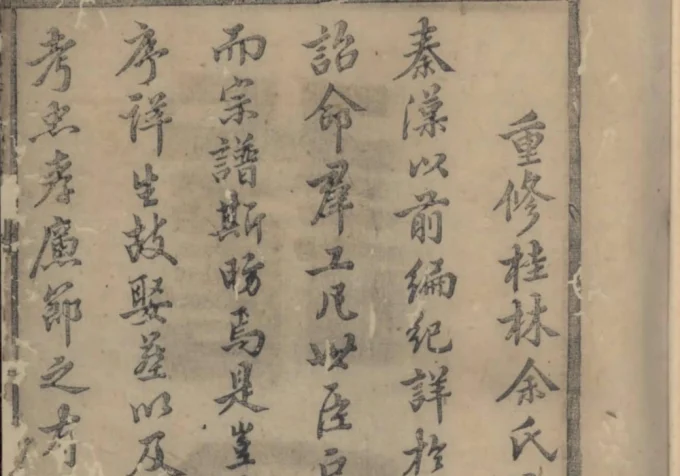 重修桂林余氏
秦漢以前編紀詳於
詔命群工凡世臣
而宗譜斯昉焉是豈
序詳生故娶葬以及
考忠孝廉節之